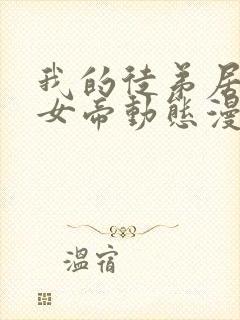 我的徒弟居
女帝動態漫
溫宿